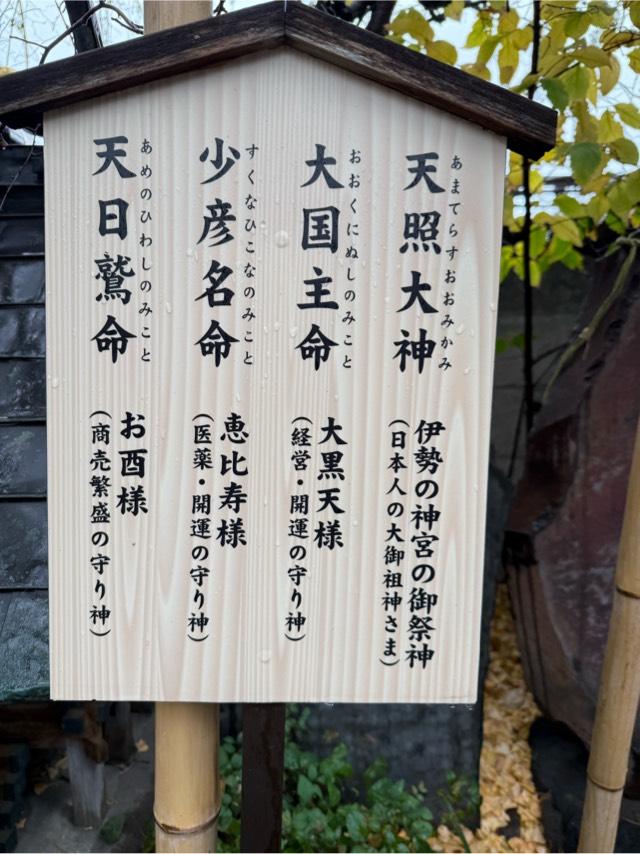 天照大神
あまてらすおおみかみ
伊勢の神宮の御祭神
(日本人の大御祖神さま)
大国主命
おおくにぬしのみこと
大黒天様
(経営・開運の守り神)
少彦名命
すくなひこなのみこと
恵比寿様
(医薬・開運の守り神)
天日鷲命
あめのひわしのみこと
お酉様
(商売繁盛の守り神)